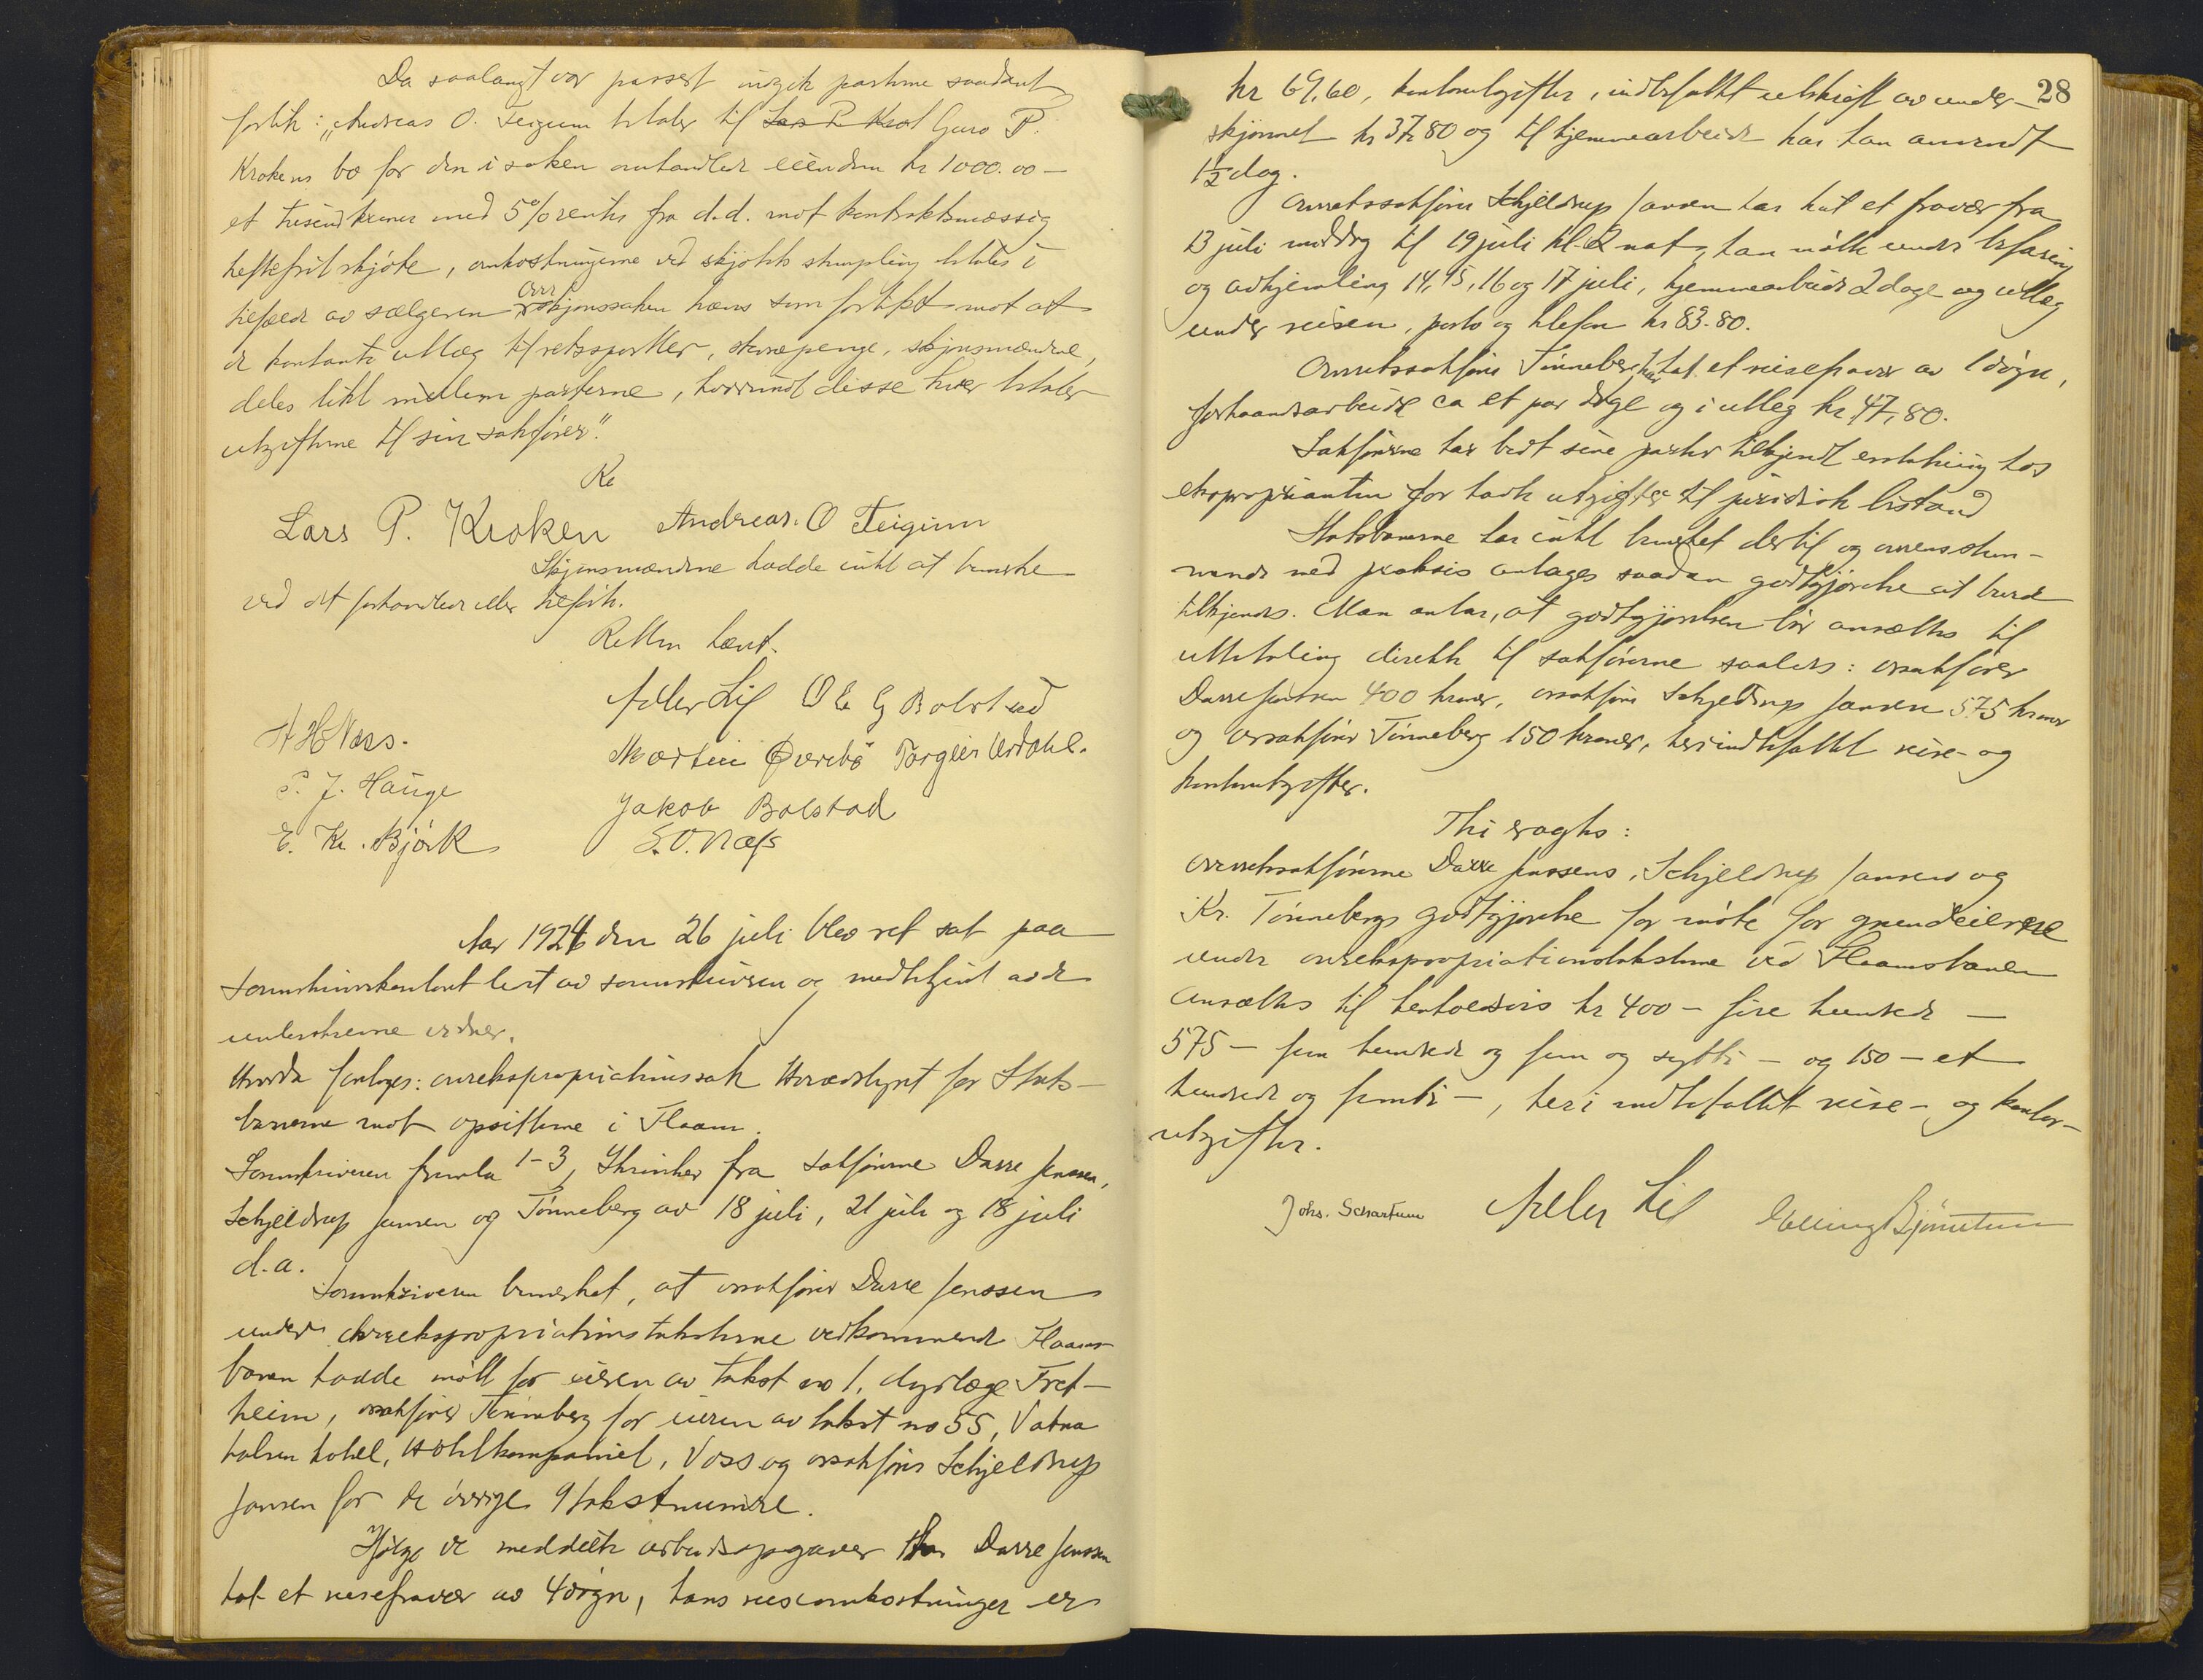 Da saalangt var passert indgik parterne saadant
forlik: "Andreas O. Feigum betaler til Lars P. Krok Guro P.
Krokens bo for den i saken omhandlede eiendom kr 1000.00 —
et tusind kroner med 5% renter fra d.d. mot kontraktsmæssig
heftefrit skjøte, omkostningerne ved skjøtets stempling betales i
tilfælde av sælgeren. Overskjønssaken hæves som forlikt mot at
de kontante utlæg til retssportler, stevnepenge, skjønsmændene,
deles likt mellem parterne, hvorimot disse hver betaler
utgifterne til sin sakfører."
Lars P. Kroken Andreas. O Feigum
Skjønsmændene hadde intet at bemerke
ved det forhandlede eller tilførte.
Retten hævet.
Adler Lil O E G Bolstad
H H Næss. Martin Øverbø Torgeir Urdahl.
P. J. Hauge Jakob Bolstad
E. Kr. Bjørk S. O. Næss
Aar 1924 den 26 juli blev ret sat paa
sorenskriverkontoret ledet av sorenskriveren og medbetjent av de
underskrevne vidner.
Hvorda foretoges: overekspropriationssak Hovedstyret for Stats-
banerne mot opsitterne i Flaam.
Sorenskriveren fremla 1-3, Skrivelser fra sakførerne Darre Jenssen,
Schjeldrup Jansen og Tønneberg av 18 juli, 21 juli og 18 juli
d.a.
Sorenskriveren bemerket, at orsakfører Darre Jenssen
under overekspropriationstaksterne vedkommende Flaams-
banen hadde møtt for eieren av takst no 1, dyrlæge Fret-
heim, orsakfører Tønneberg for eieren av takst no 55, Vatna
halsen hotel, Hotelkompaniet, Voss og orsakfører Schjeldrup
Jansen for de øvrige 9 takstnumre.
Ifølge de meddelte arbeidsopgaver har Darre Jenssen
hat et reisefravær av 4 døgn, hans reiseomkostninger er
28
kr 69,60, kontorutgifter, indbefattet utskrift av under-
skjønnet kr 37,80 og til hjemmearbeide har han anvendt
1½ dag.
Overretssakfører Schjeldrup Jansen har hat et fravær fra
13 juli middag til 19 juli kl. 2 nat, han møtte under befaring
og avhjemling 14, 15, 16 og 17 juli, hjemmearbeide 2 dage og utlæg
under reisen, porto og telefon kr 83.80.
Overretssakfører Tønneberg har hat et reisefravær av 1 døgn,
forhaandsarbeide ca et par dage og i utlæg kr. 47,80.
Sakførerne har bedt sine parter tilkjendt erstatning hos
ekspropriantin for havte utgifter til juridisk bistand
Statsbanerne har intet bemerket dertil og overensstem-
mende med praksis antages saadan godtgjørelse at burde
tilkjendes. Man antar, at godtgjørelsen bør ansættes til
utbetaling direkte til sakførerne saaledes: orsakfører
Darre Jenssen 400 kroner, orsakfører Schjeldrup Jansen 575 kroner
og orsakfører Tønneberg 150 kroner, heri indbefattet reise- og
kontorutgifter.
Thi eragtes:
Overretssakførerne Darre Jenssens, Schjeldrup Jansens og
Kr. Tønnebergs godtgjørelse for møte for grundeierne
under overekspropriationstaksterne ved Flaamsbanen
ansættes til henholdsvis kr 400 — fire hundrede —
575 — fem hundrede og fem og sytti — og 150 — et
hundrede og femti —, heri indbefattet reise- og kontor-
utgifter.
Johs. Schartum Adler Lil Elling Bjørnetun